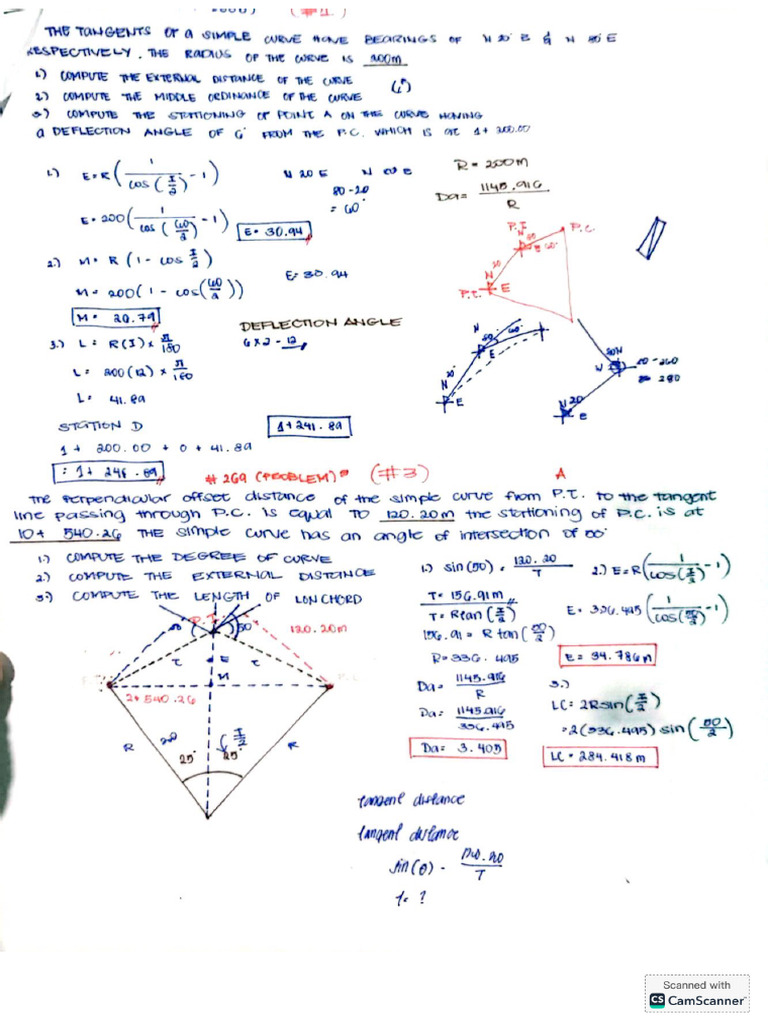 (#1)
THE TANGENTS OF A SIMPLE CURVE HAVE BEARINGS OF N 20° E & N 80° E
RESPECTIVELY. THE RADIUS OF THE CURVE IS 200m
1.) COMPUTE THE EXTERNAL DISTANCE OF THE CURVE
2.) COMPUTE THE MIDDLE ORDINANCE OF THE CURVE
3.) COMPUTE THE STATIONING OF POINT A ON THE CURVE HAVING
A DEFLECTION ANGLE OF 6° FROM THE P.C. WHICH IS AT 1+ 200.00
1.) E=R(1/cos(I/2) -1)
N 20 E
80-20
= 60°
R = 200m
Da= 1145.916/R
E= 200(1/cos(60/2) -1)
E= 30.94
2.) M= R (1- cos I/2)
E= 30.94
M= 200(1- cos(60/2))
M= 20.79
P.I
P.C.
P.T.
DEFLECTION ANGLE
6x2=12
3.) L= R(I) x π/180
L= 200(12) x π/180
L= 41.89
STATION D
1+241.89
1+ 200.00 + 0 + 41.89
: 1+ 246.89
#269 (PROBLEM) (#3)
A
The perpendicular offset distance of the simple curve from P.T. to the tangent
line passing through P.C. is equal TO 120.20m the stationing of P.C. is at
10+ 540.26 THE simple curve has an angle of intersection of 50°
1.) COMPUTE THE DEGREE OF CURVE
2.) COMPUTE THE EXTERNAL DISTANCE
3.) COMPUTE THE LENGTH OF LONCHORD
1.) sin(50) = 120.20/T
T= 156.91m
T= Rtan(I/2)
156.91= R tan(50/2)
R= 336.495
Da= 1145.916/R
Da= 1145.916/336.495
Da= 3.405
2.) E=R(1/cos(I/2) -1)
E= 336.495(1/cos(50/2) -1)
E= 34.786m
3.)
LC= 2Rsin(I/2)
=2(336.495) sin(50/2)
LC= 284.418m
P.I.
50
120.20m
T
E
T
M
2+540.26
R
I/2
R
25°
25°
tangent distance
tangent distance
sin(θ) = 120.20/T
t= ?
Scanned with
CS CamScanner